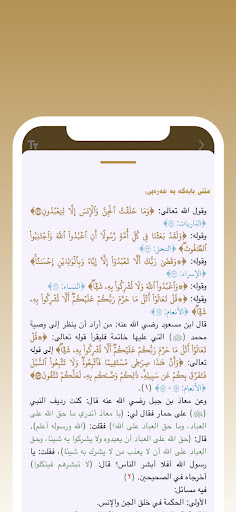 TT
مەتنی بابەکە بە عەرەبی:
وقول الله تعالى: ﴿وَمَا خَلَقْتُ الْجِنَّ وَالْإِنسَ إِلَّا لِيَعْبُدُونِ﴾
[الذاريات:
وقوله: ﴿وَلَقَدْ بَعَثْنَا فِي كُلِّ أُمَّةٍ رَّسُولًا أَنِ اعْبُدُوا اللَّهَ وَاجْتَنِبُوا
الطَّاغُوتَ﴾ [النحل:
وقوله: ﴿وَقَضَىٰ رَبُّكَ أَلَّا تَعْبُدُوا إِلَّا إِيَّاهُ وَبِالْوَالِدَيْنِ إِحْسَانًا﴾
[الإسراء:
وقوله: ﴿وَاعْبُدُوا اللَّهَ وَلَا تُشْرِكُوا بِهِ شَيْئًا﴾ [النساء:
وقوله: ﴿قُلْ تَعَالَوْا أَتْلُ مَا حَرَّمَ رَبُّكُمْ عَلَيْكُمْ أَلَّا تُشْرِكُوا بِهِ شَيْئًا﴾
[الأنعام:
قال ابن مسعود رضي الله عنه: من أراد أن ينظر إلى وصية
محمد (ﷺ) التي عليها خاتمه فليقرأ قوله تعالى: ﴿قُلْ
تَعَالَوْا أَتْلُ مَا حَرَّمَ رَبُّكُمْ عَلَيْكُمْ أَلَّا تُشْرِكُوا بِهِ شَيْئًا﴾ إلى قوله
تعالى: ﴿وَأَنَّ هَٰذَا صِرَاطِي مُسْتَقِيمًا فَاتَّبِعُوهُ وَلَا تَتَّبِعُوا السُّبُلَ
فَتَفَرَّقَ بِكُمْ عَن سَبِيلِهِ ذَٰلِكُمْ وَصَّاكُم بِهِ لَعَلَّكُمْ تَتَّقُونَ﴾
[الأنعام: (١).
وعن معاذ بن جبل رضي الله عنه قال: كنت رديف النبي
(ﷺ) على حمار فقال لي: (يا معاذ أتدري ما حق الله على
العباد، وما حق العباد على الله؟) فقلت: (الله ورسوله أعلم).
قال: (حق الله على العباد أن يعبدوه ولا يشركوا به شيئا، وحق
العباد على الله أن لا يعذب من لا يشرك به شيئا)، فقلت: يا
رسول الله أفلا أبشر الناس؟ قال: (لا تبشرهم فيتكلوا)
أخرجاه في الصحيحين. (٢)
فيه مسائل:
الأولى: الحكمة في خلق الجن والإنس.